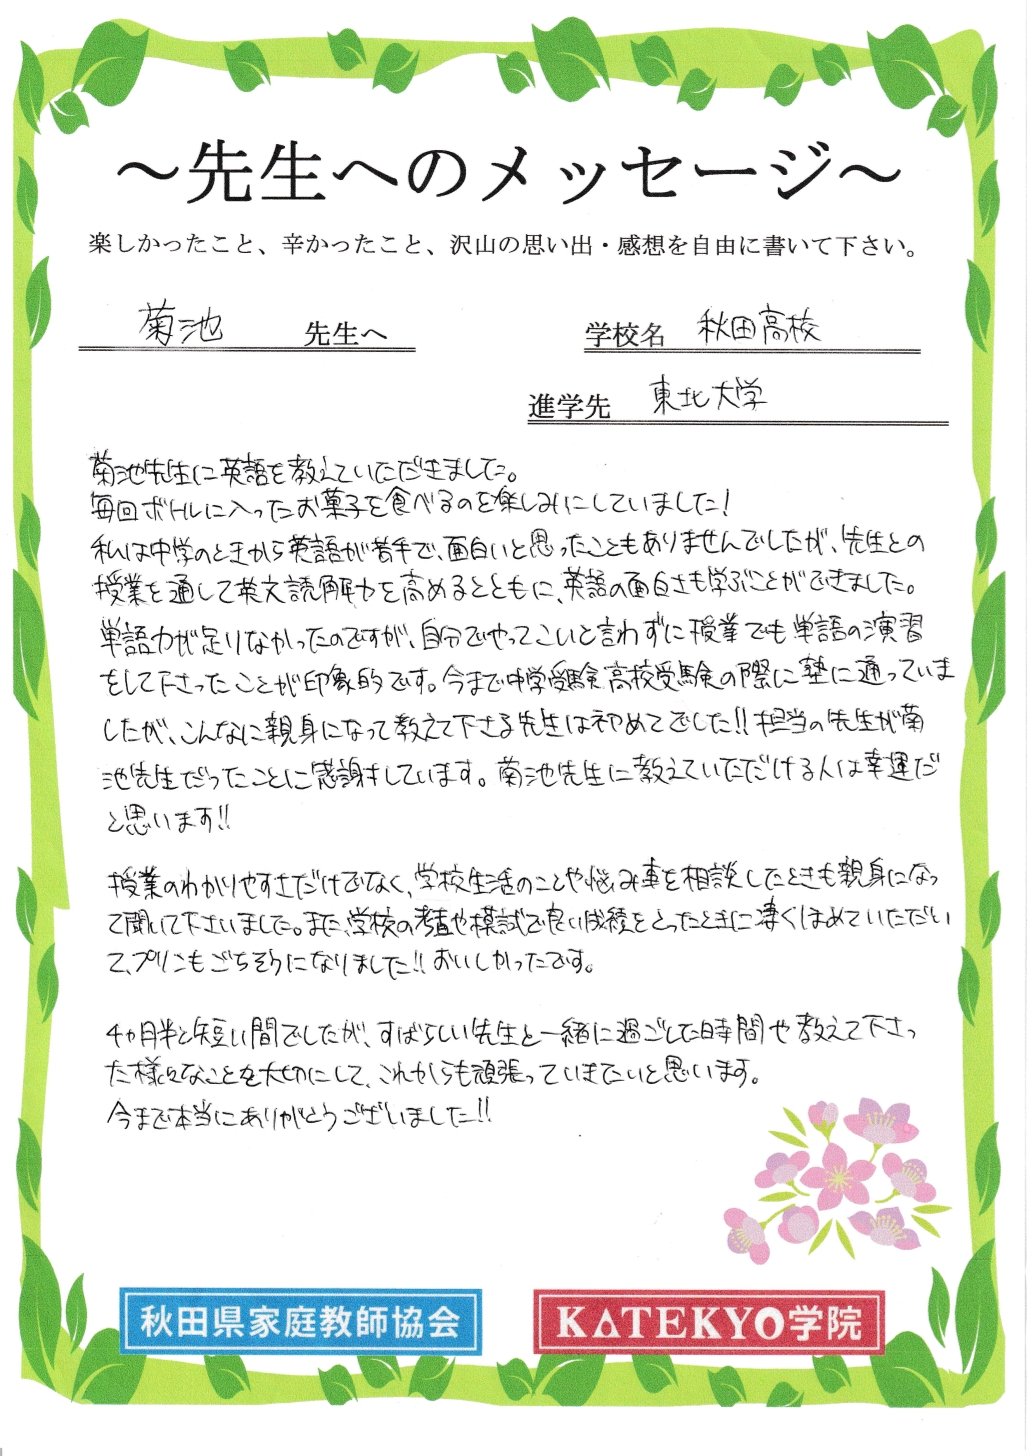 ～先生へのメッセージ～
楽しかったこと、辛かったこと、沢山の思い出・感想を自由に書いて下さい。
菊池 先生へ
学校名 秋田高校
進学先 東北大学
菊池先生に英語を教えていただきました。
毎回ボトルに入ったお菓子を食べるのを楽しみにしていました！
私は中学のときから英語が苦手で、面白いと思ったこともありませんでしたが、先生との
授業を通して英文読解力を高めるとともに、英語の面白さも学ぶことができました。
単語力が足りなかったのですが、自分でやってこいと言わずに授業でも単語の演習
をして下さったことが印象的です。今まで中学受験、高校受験の際に塾に通っていま
したが、こんなに親身になって教えて下さる先生は初めてでした!! 担当の先生が菊
池先生だったことに感謝しています。菊池先生に教えていただける人は幸運だ
と思います!!
授業のわかりやすさだけでなく、学校生活のことや悩み事を相談したときも親身になっ
て聞いて下さいました。また、学校の考査や模試で良い成績をとったときに凄くほめていただい
て、プリンもごちそうになりました!! おいしかったです。
4ヵ月半と短い間でしたが、すばらしい先生と一緒に過ごした時間や教えて下さっ
た様々なことを大切にして、これからも頑張っていきたいと思います。
今まで本当にありがとうございました!!
秋田県家庭教師協会
KATEKYO学院